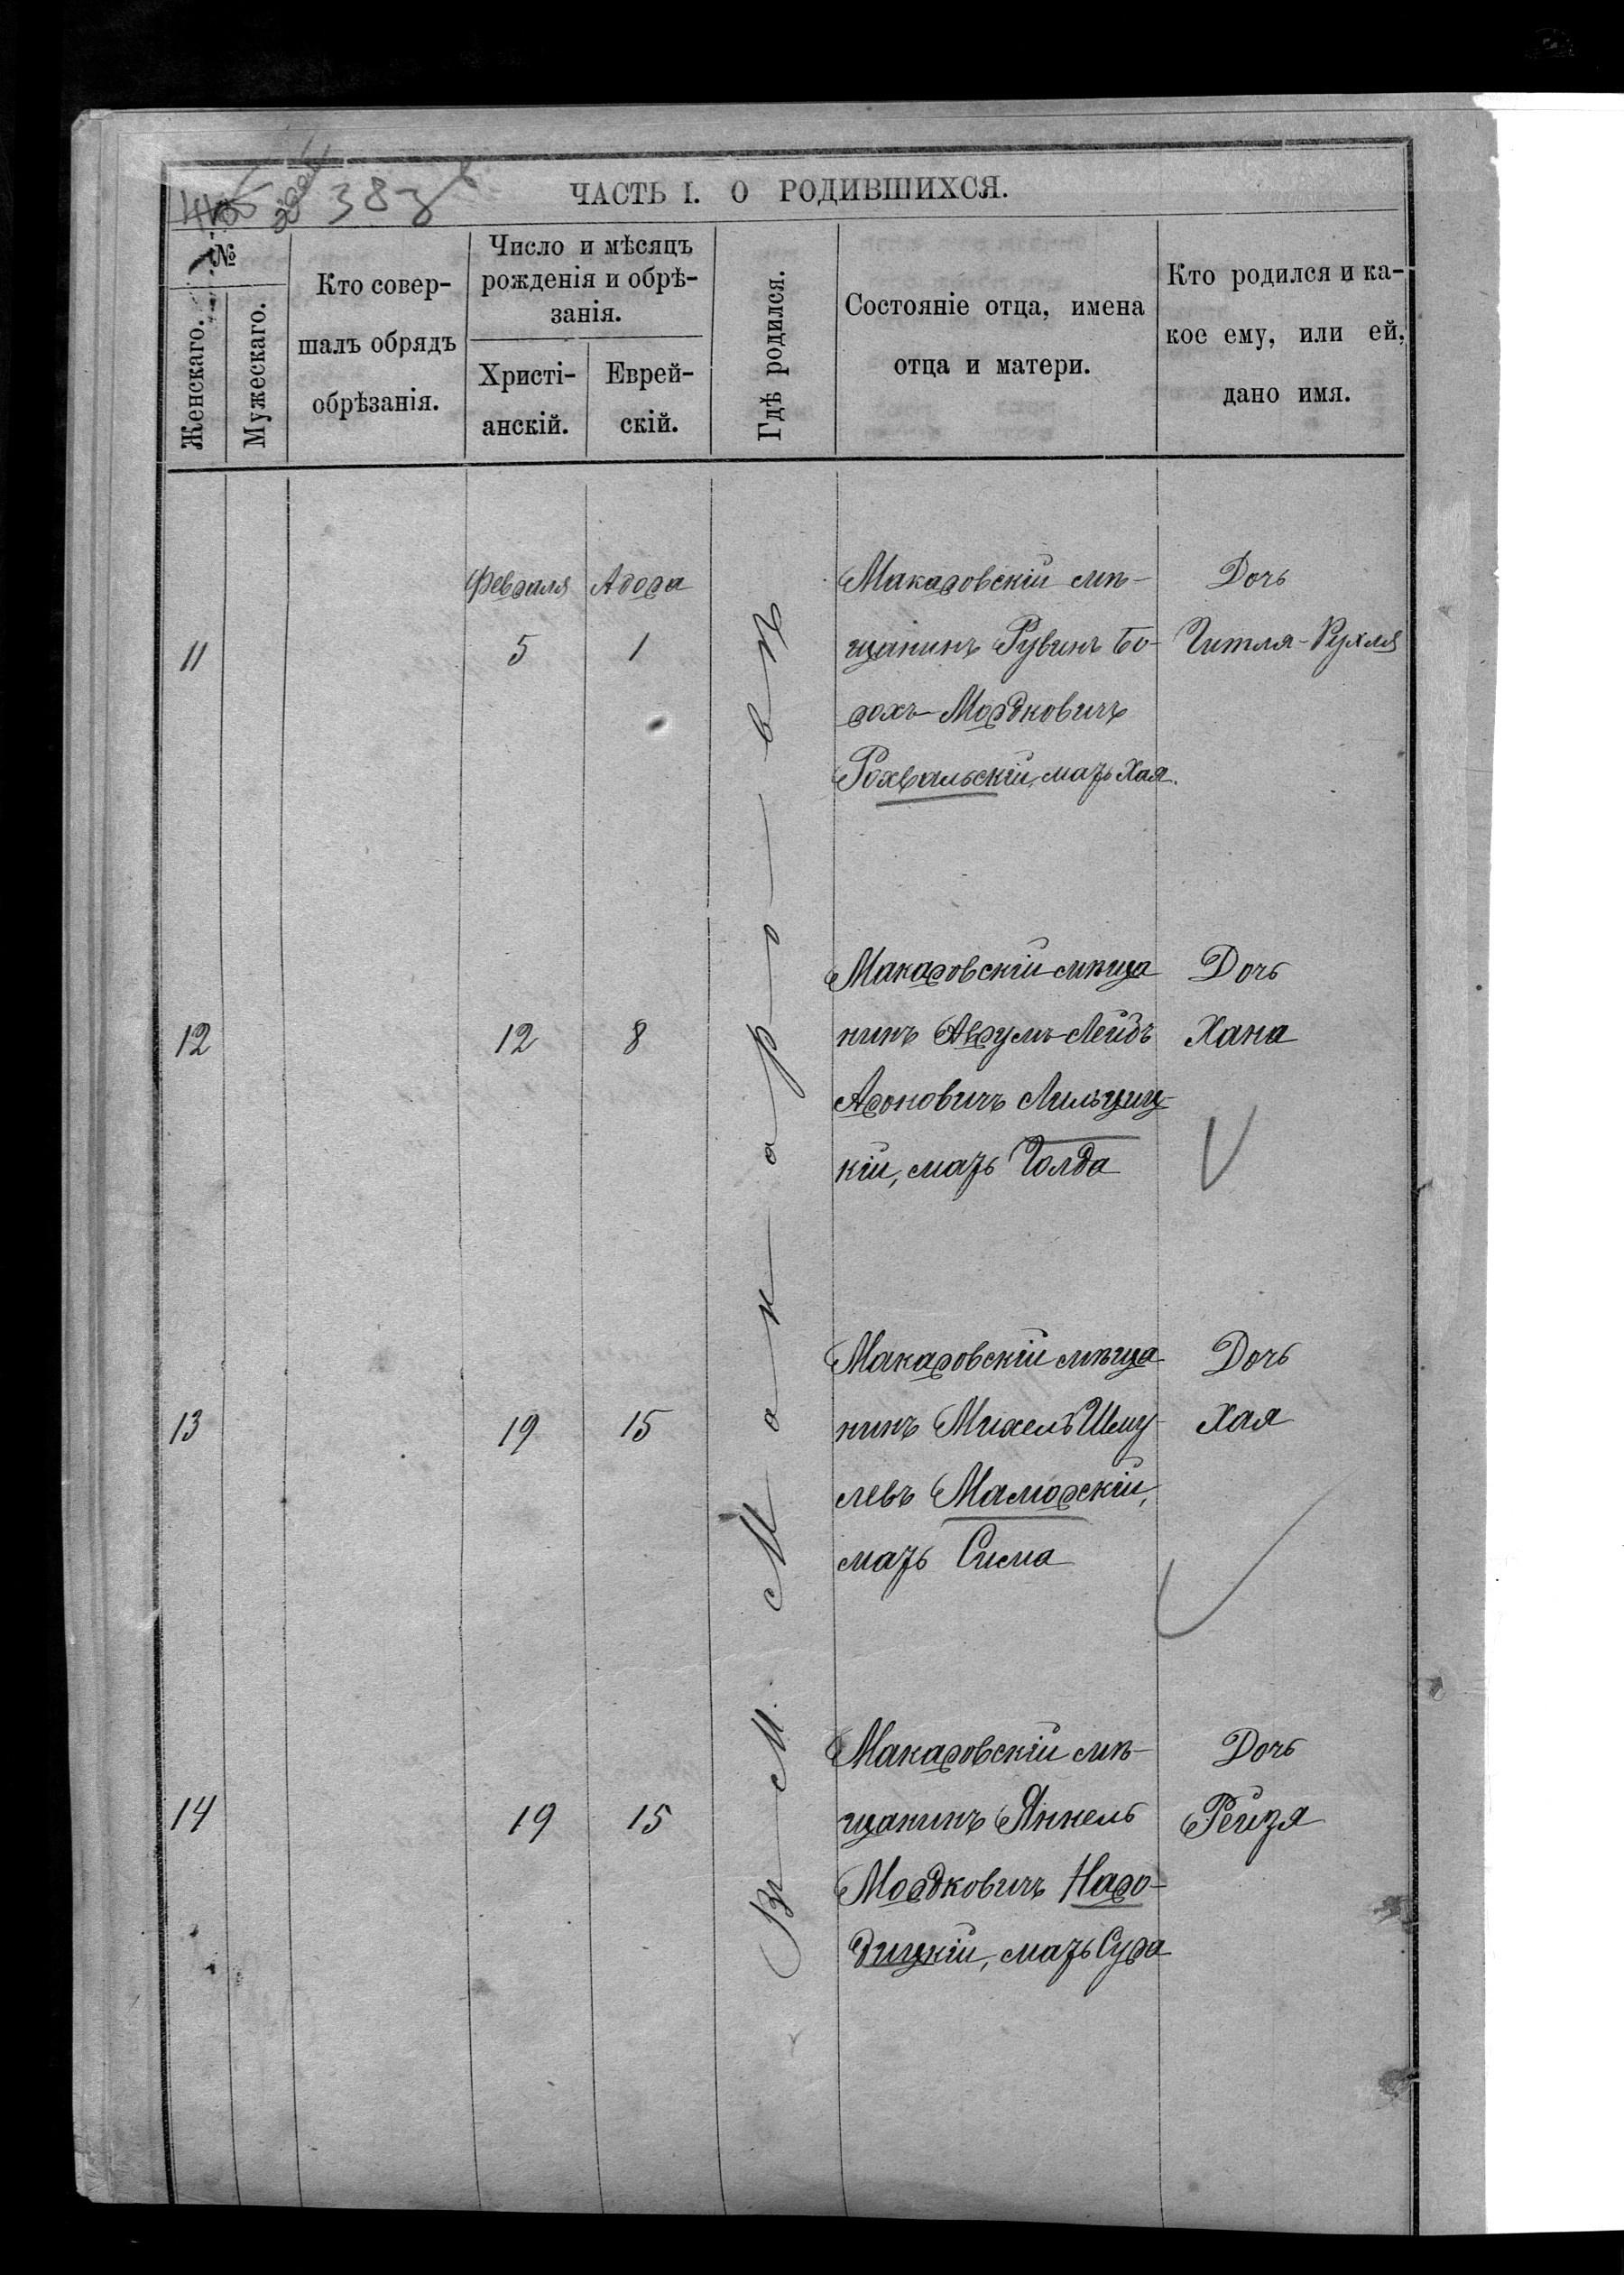 383
ЧАСТЬ I. О РОДИВШИХСЯ.
№
Женскаго.
Мужескаго.
Кто совер-
шалъ обрядъ
обрѣзанія.
Число и мѣсяцъ
рожденія и обрѣ-
занія.
Христі-
анскій.
Еврей-
скій.
Гдѣ родился.
Состояніе отца, имена
отца и матери.
Кто родился и ка-
кое ему, или ей,
дано имя.
Въ М. Макаровѣ
11
Февраля
5
Адора
1
Макаровскій мѣ-
щанинъ Рувинъ Бо-
рохъ-Мордковичъ
Рохвальскій, мать Хая.
Дочь
Гитля-Рухля
12
12
8
Макаровскій мѣща
нинъ Аврумъ-Лейбъ
Ароновичъ Лильчиц-
кій, мать Голда
Дочь
Хана
13
19
15
Макаровскій мѣща
нинъ Михель Шму-
левъ Маморскій,
мать Сима
Дочь
Хая
14
19
15
Макаровскій мѣ-
щанинъ Янкель
Мордковичъ Наро-
дицкій, мать Сура
Дочь
Рейзя